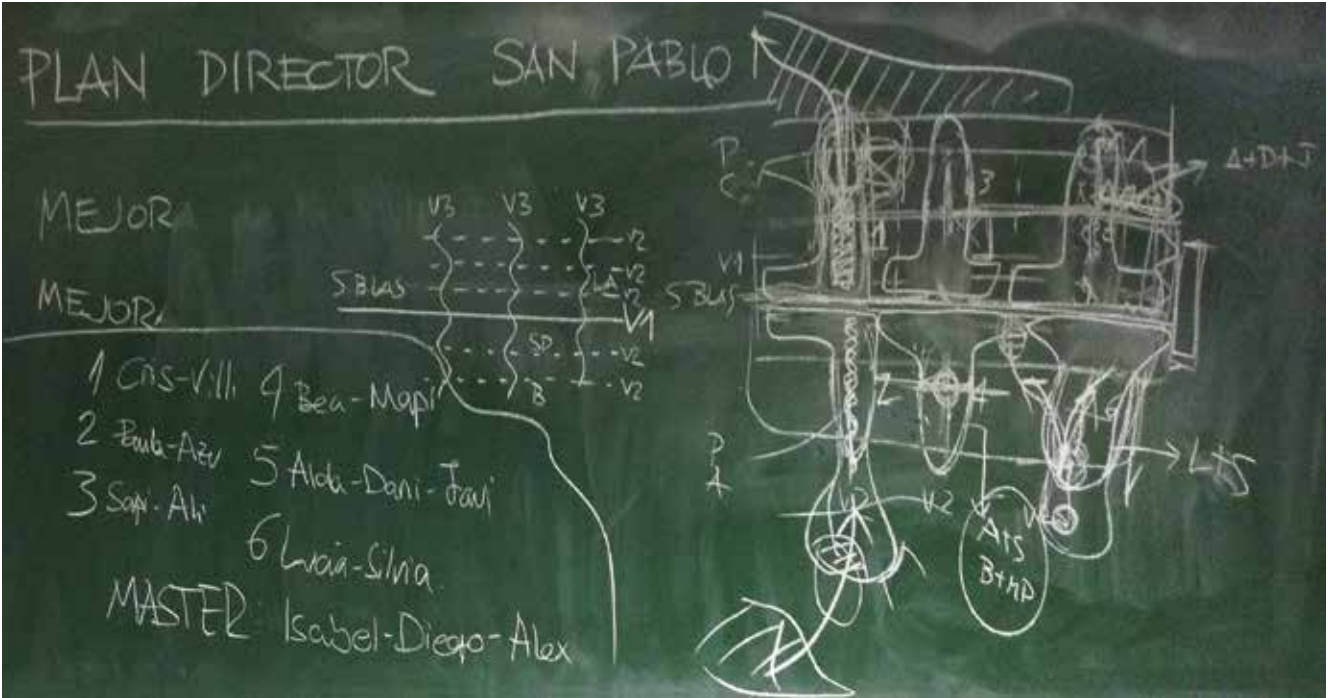 PLAN DIRECTOR SAN PABLO
MEJOR
MEJOR
V3 V3 V3
V2
V2
S BLAS V2
V1
SP V2
B V2
1 Cris-Villi
2 Paula-Azu
3 Sapi-Ali
4 Bea-Mapi
5 Alda-Dani-Javi
6 Lucia-Silvia
MASTER Isabel-Diego-Alex
P
C
A+D+J
3
1
V1
S BLAS
2 4 6
P
A
L+S
V2 V2
A+S
B+MP